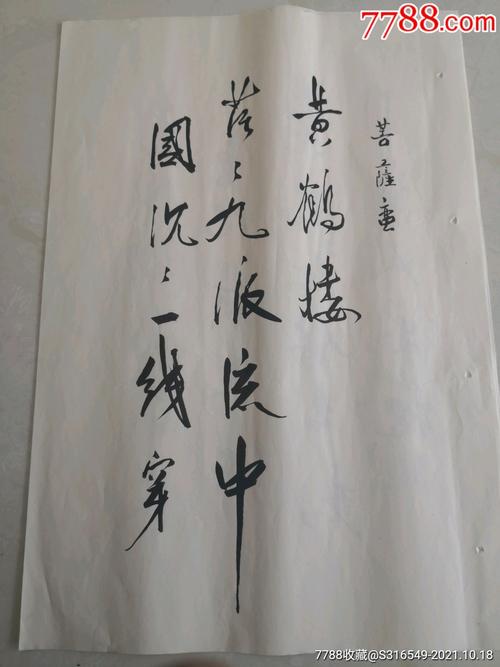 7788.com
菩薩蛮
黄鹤楼
茫〻九派流中
國沉〻一线穿
7788收藏@S316549-2021.10.18